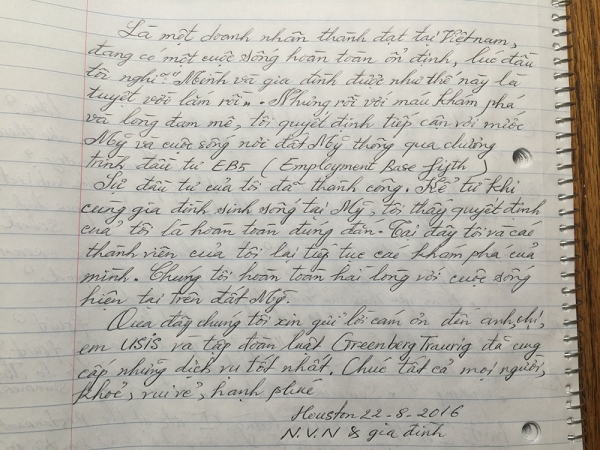 Là một doanh nhân thành đạt tại Việtnam,
đang có một cuộc sống hoàn toàn ổn định, lúc đầu
tôi nghĩ "Mình và gia đình được như thế này là
tuyệt vời lắm rồi". Nhưng rồi với máu khám phá
và lòng đam mê, tôi quyết định tiếp cận với nước
Mỹ và cuộc sống nơi đất Mỹ thông qua chương
trình đầu tư EB5 (Employment Base fifth)
Sự đầu tư của tôi đã thành công. Kể từ khi
cùng gia đình sinh sống tại Mỹ, tôi thấy quyết định
của tôi là hoàn toàn đúng đắn. Tại đây tôi và các
thành viên của tôi lại tiếp tục các khám phá của
mình. Chúng tôi hoàn toàn hài lòng với cuộc sống
hiện tại trên đất Mỹ.
Qua đây chúng tôi xin gửi lời cám ơn đến anh, chị,
em USIS và tập đoàn luật Greenberg Traurig đã cung
cấp những dịch vụ tốt nhất. Chúc tất cả mọi người,
khoẻ, vui vẻ, hạnh phúc
Houston 22-8-2016
N.V.N & gia đình